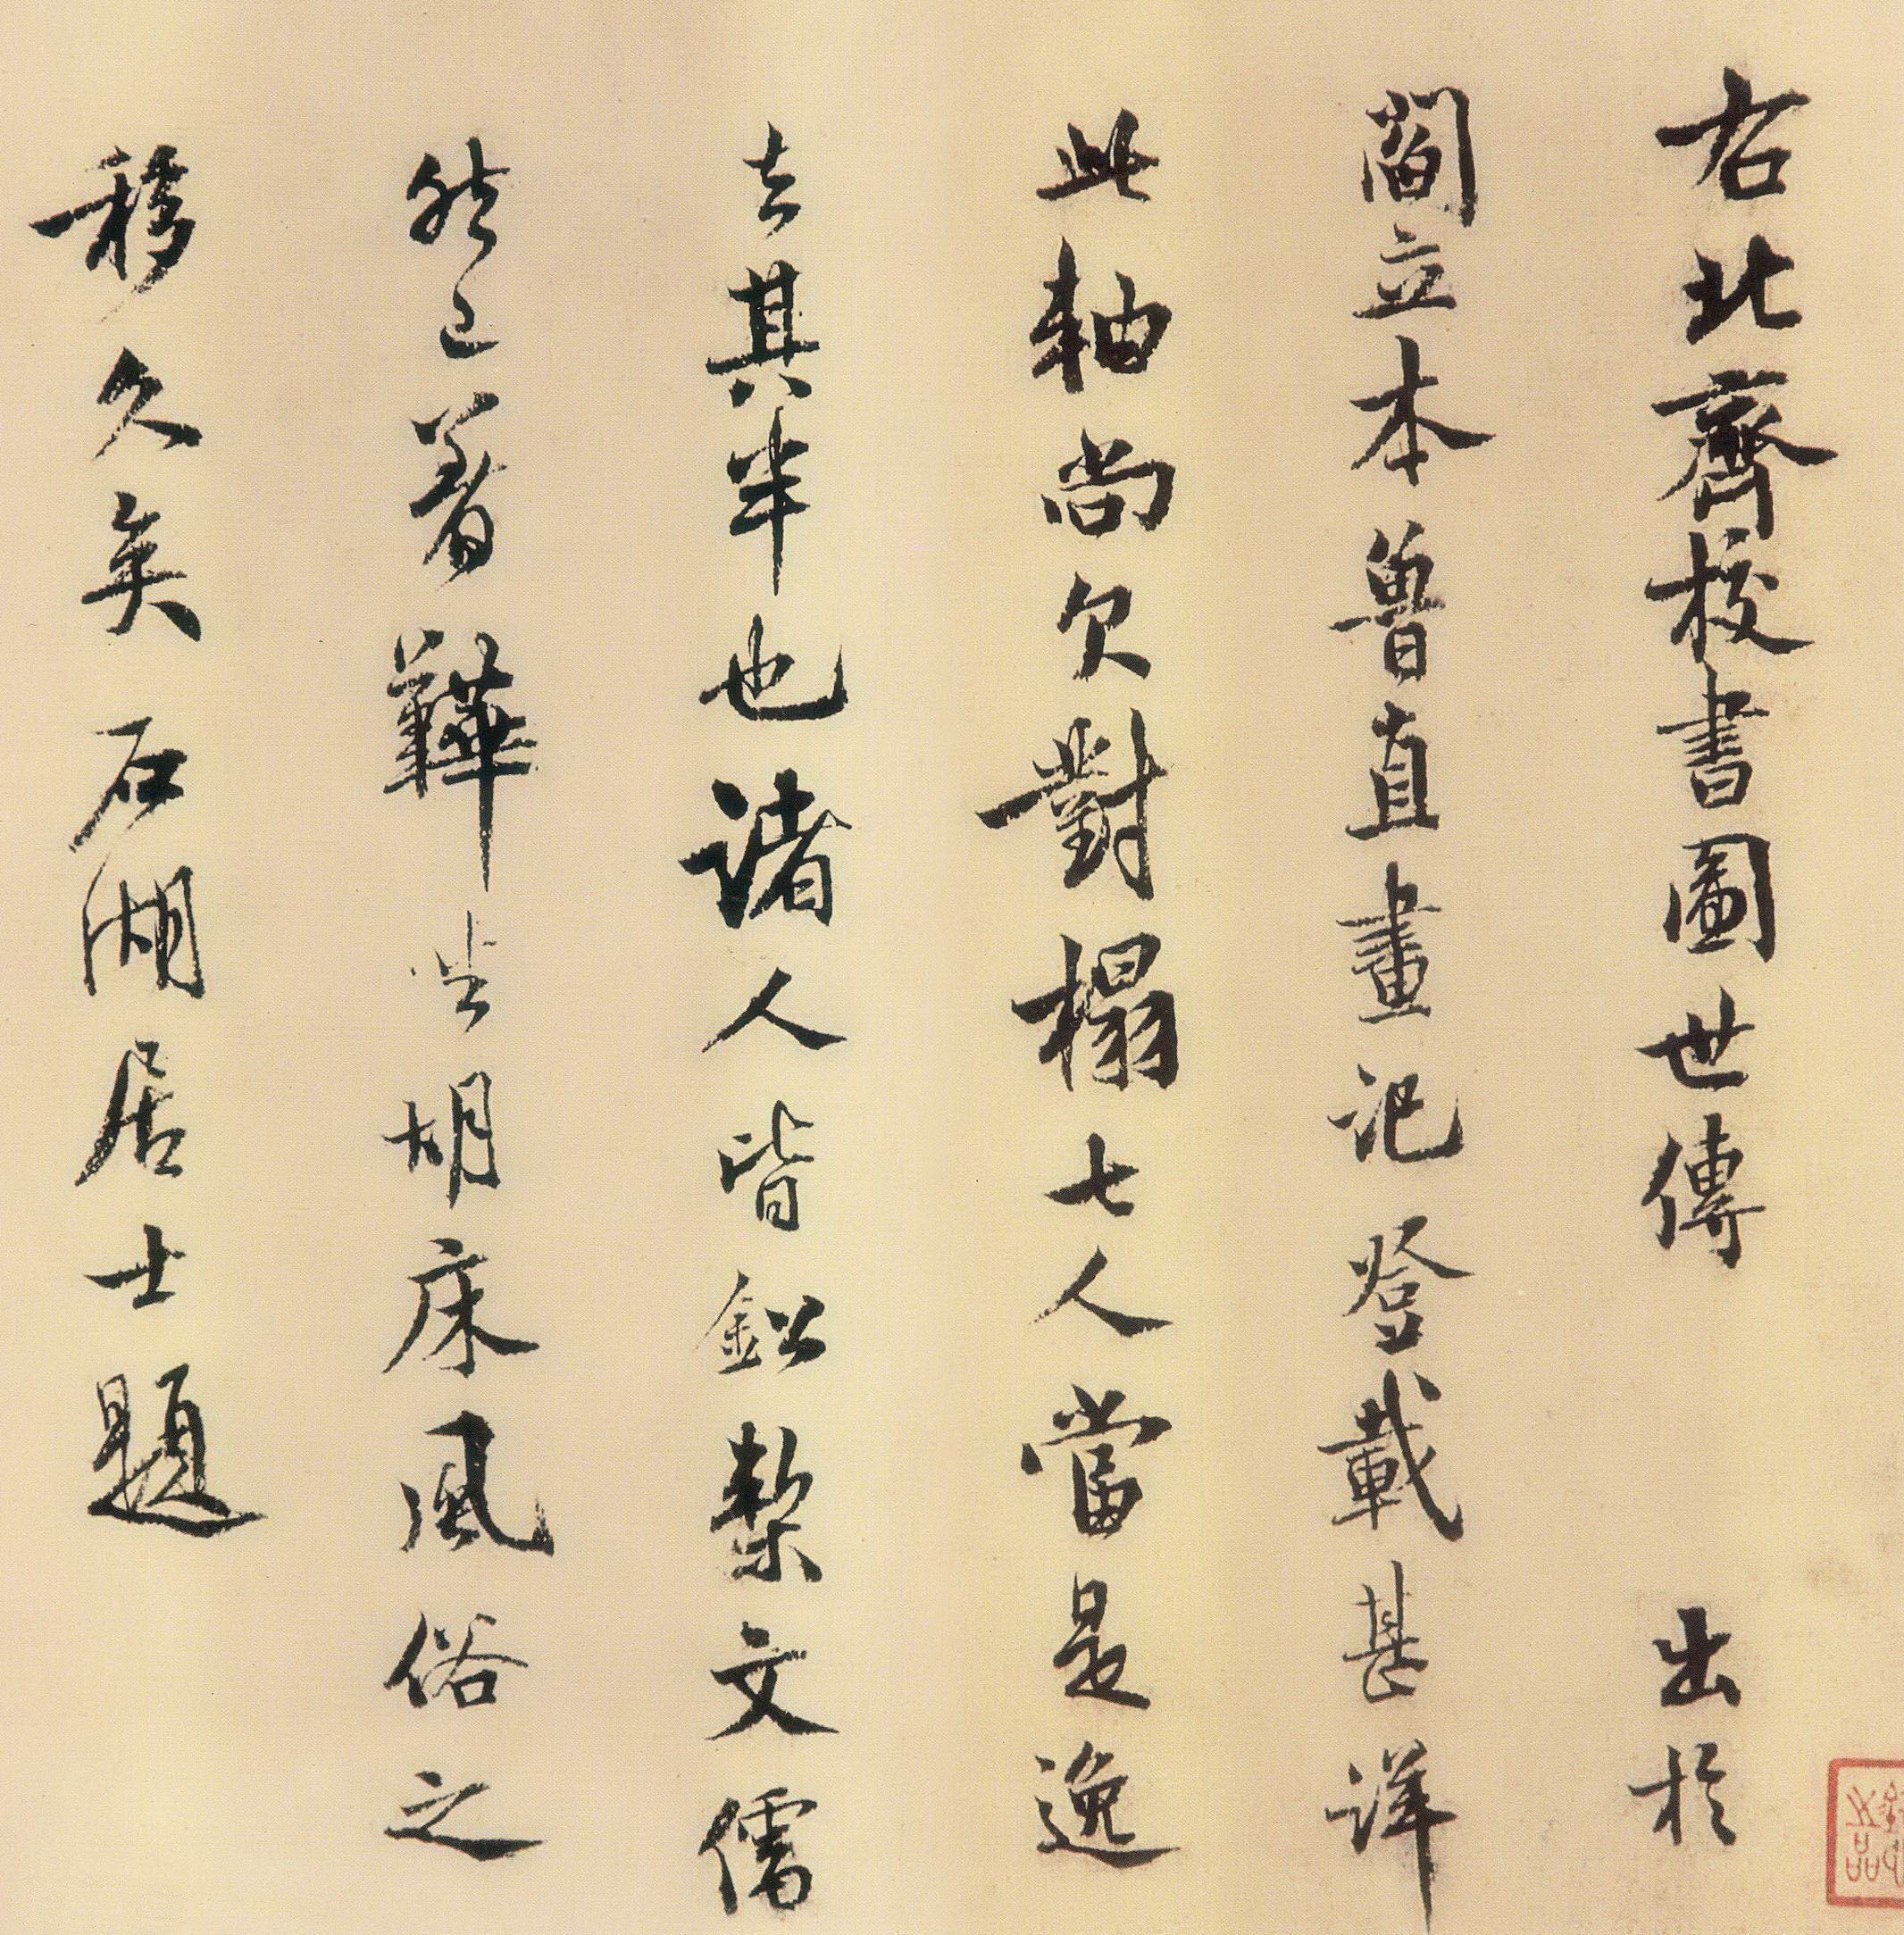 右北齊校書圖世傳出於
閻立本魯直畫記登載甚詳
此軸尚欠對榻七人當是逸
去其半也諸人皆鉛槧文儒
然已著鞾坐胡床風俗之
移久矣石湖居士題